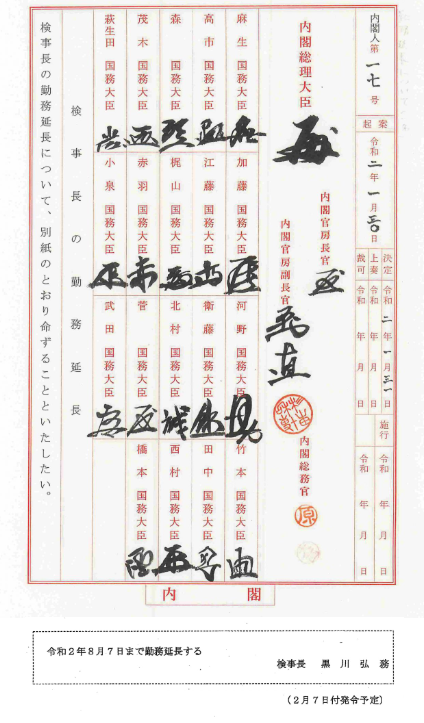 内閣人第一七号
起案 令和二年一月三〇日
決定 令和二年一月三一日
上奏 令和 年 月 日
裁可 令和 年 月 日
施行 令和 年 月 日
令和 年 月 日
内閣官房長官
内閣総理大臣
内閣官房副長官
内閣総務官
原
麻生国務大臣
加藤国務大臣
河野国務大臣
竹本国務大臣
高市国務大臣
江藤国務大臣
衛藤国務大臣
田中国務大臣
森国務大臣
梶山国務大臣
北村国務大臣
西村国務大臣
茂木国務大臣
赤羽国務大臣
菅国務大臣
橋本国務大臣
萩生田国務大臣
小泉国務大臣
武田国務大臣
検事長の勤務延長
検事長の勤務延長について、別紙のとおり命ずることといたしたい。
内閣
令和2年8月7日まで勤務延長する
検事長 黒川弘務
(2月7日付発令予定)